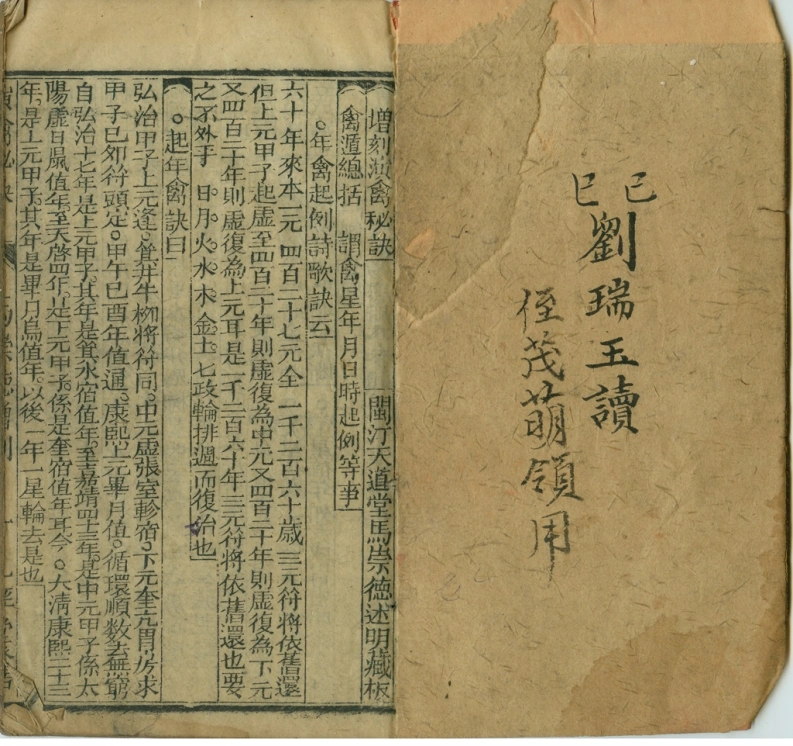 己巳
劉瑞玉讀
侄茂萌領用
增刻演禽秘訣 閩汀天道堂馬崇德述明藏板
禽遁總括 謂禽星年月日時起例等事
○年禽起例詩歌訣云
六十年來本一元 四百二十七元全 一千二百六十歲 三元符將依舊還
但上元甲子起虛至四百二十年則虛復為中元又四百二十年則虛復為下元
又四百二十年則虛復為上元耳是一千二百六十年三元符將依舊還也要
之不外乎 日月火水木金土七政輪排週而復始也
○起年禽訣曰
弘治甲子上元逢。箕井牛柳將符同。中元虛張室軫宿。下元奎亢胃房求
甲子己卯符頭定。甲午己酉年值通。康熙上元畢月值。循環順数去無窮
自弘治十七年是上元甲子其年是箕水宿值年至嘉靖四三年是中元甲子係太
陽虛日鼠值年至天啓四年是下元甲子係是奎宿值年耳今。大清康熙二十三
年是上元甲子其年是畢月烏值年以後一年一星輪去是也
演禽秘訣 馬崇德增刻